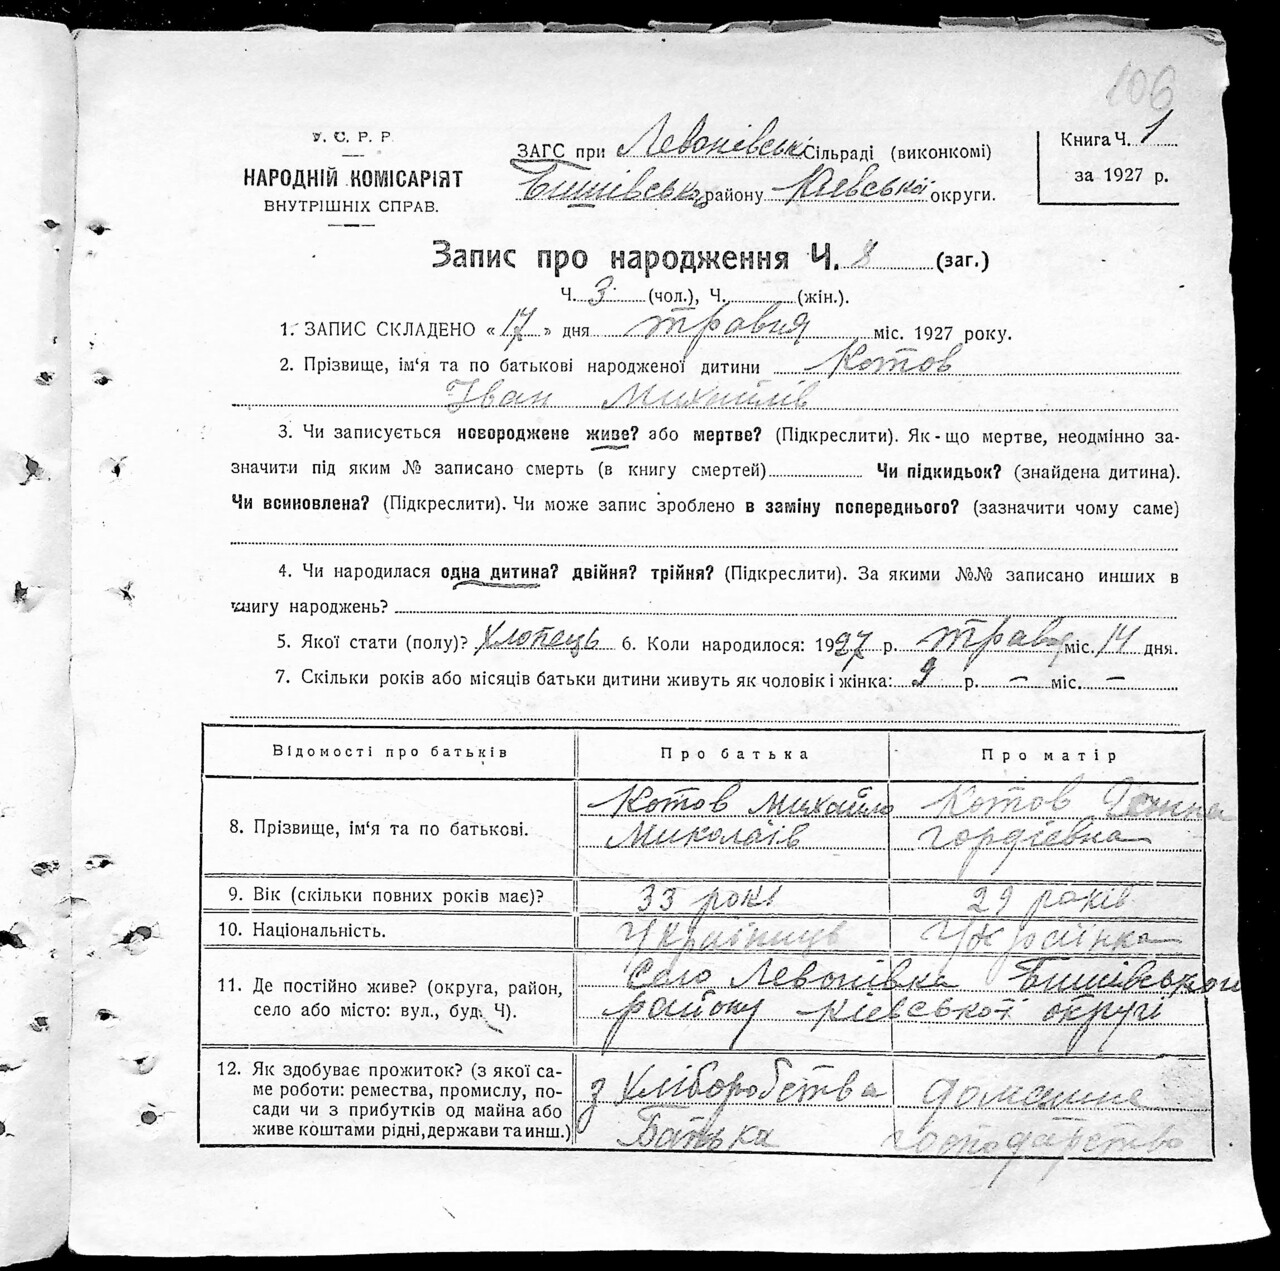 106
У. С. Р. Р.
НАРОДНІЙ КОМІСАРІЯТ
ВНУТРІШНІХ СПРАВ.
ЗАГС при Левонівськ Сільраді (виконкомі)
Бишівськ району Київської округи.
Книга Ч. 1
за 1927 р.
Запис про народження Ч. 8 (заг.)
Ч. 3 (чол.), Ч. (жін.).
1. ЗАПИС СКЛАДЕНО «17» дня травня міс. 1927 року.
2. Прізвище, ім‘я та по батькові народженої дитини Котов
Іван Михайлів
3. Чи записується новороджене живе? або мертве? (Підкреслити). Як-що мертве, неодмінно за-
значити під яким № записано смерть (в книгу смертей) Чи підкидьок? (знайдена дитина).
Чи всиновлена? (Підкреслити). Чи може запис зроблено в заміну попереднього? (зазначити чому саме)
4. Чи народилася одна дитина? двійня? трійня? (Підкреслити). За якими №№ записано инших в
книгу народжень?
5. Якої стати (полу)? хлопець 6. Коли народилося: 1927 р. травня міс. 14 дня.
7. Скільки років або місяців батьки дитини живуть як чоловік і жінка: 9 р. – міс. –
Відомості про батьків Про батька Про матір
8. Прізвище, ім‘я та по батькові. Котов Михайло Миколаїв Котов Гордієвна
9. Вік (скільки повних років має)? 33 рокі 29 років
10. Національність. Українець Українка
11. Де постійно живе? (округа, район,
село або місто: вул., буд. Ч).
Село Левонівка Бишівського
району Київської округі
12. Як здобуває прожиток? (з якої са-
ме роботи: ремества, промислу, по-
сади чи з прибутків од майна або
живе коштами рідні, держави та инш.)
з Хліборобства домашне
Батька господарство